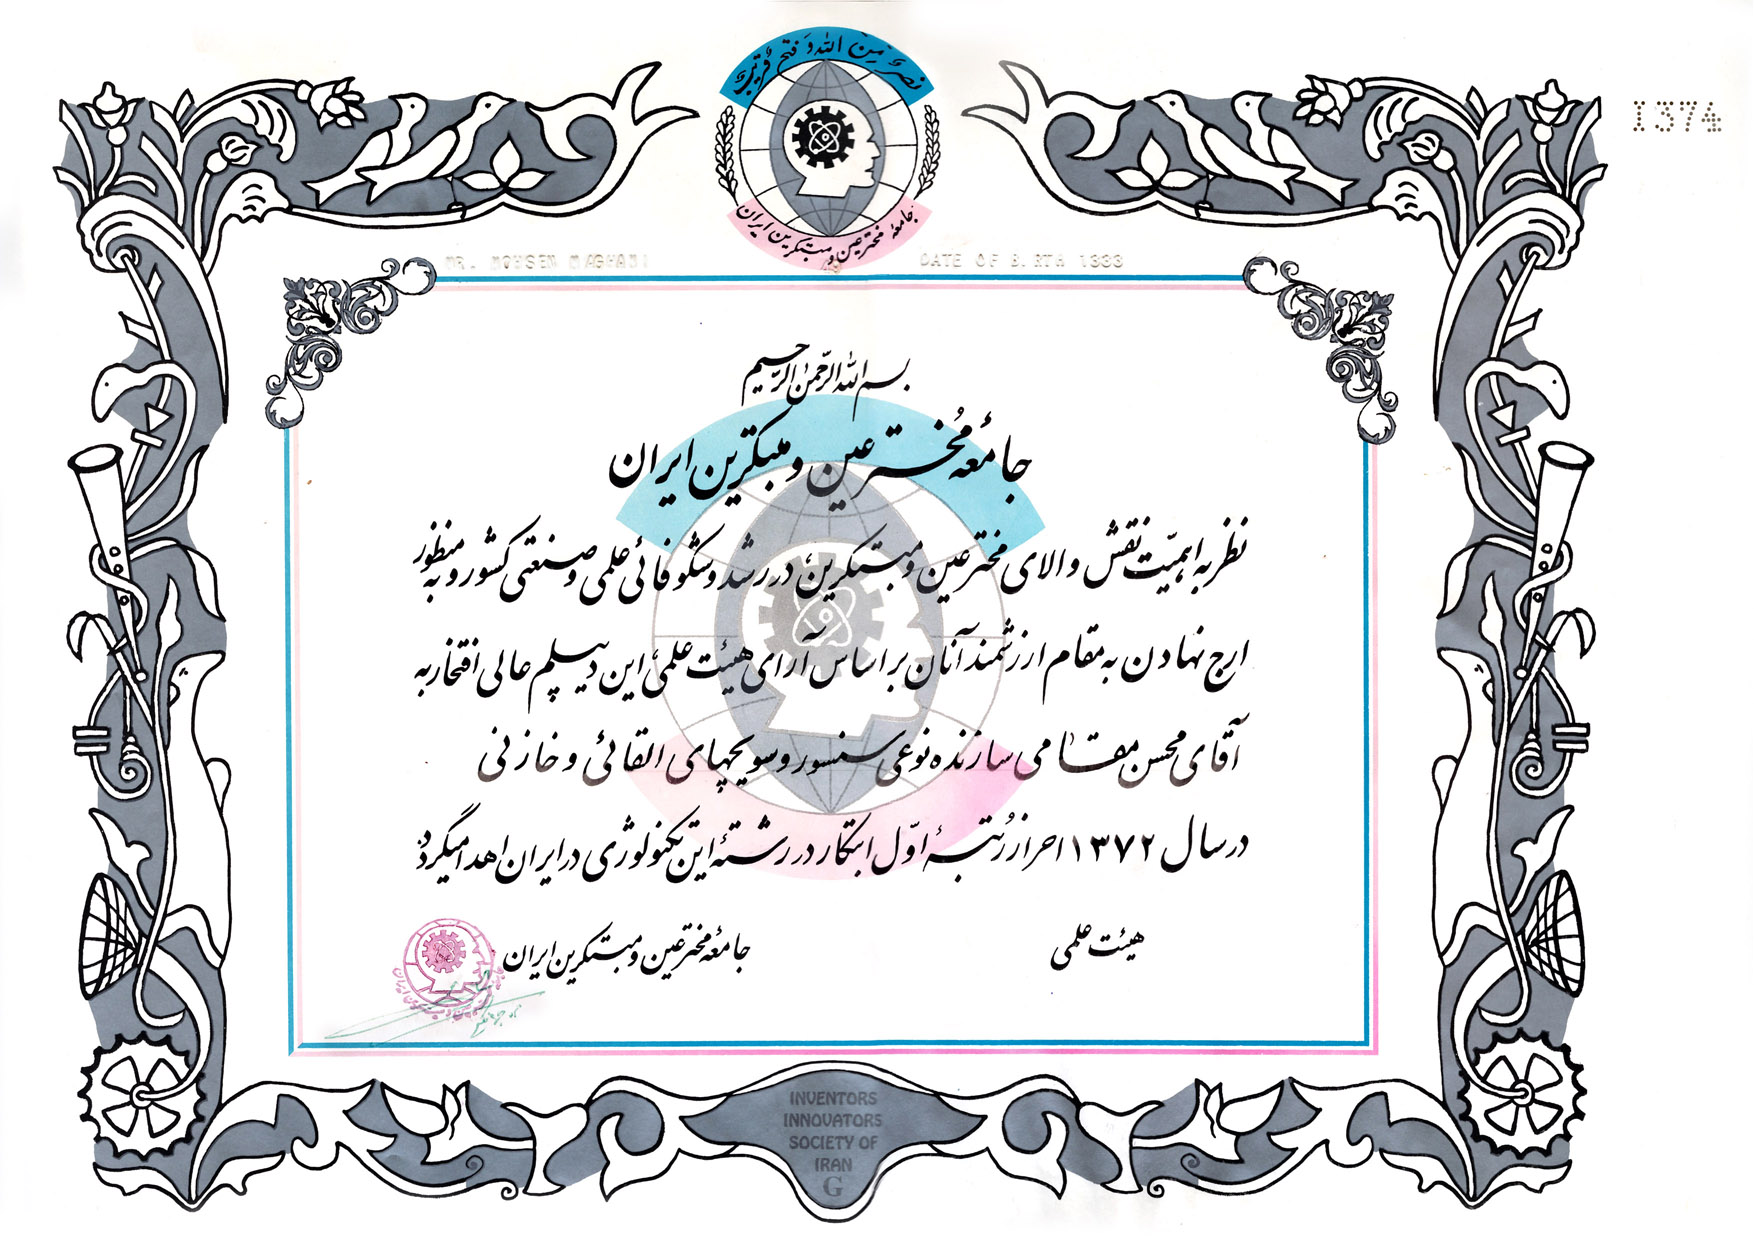 نصر من الله و فتح قریب
1374
جامعه مخترعین و مبتکرین ایران
MR. MOHSEN MAGHAMI
DATE OF BIRTH 1333
بسم الله الرحمن الرحیم
جامعهٔ مُخترعین و مبتکرین ایران
نظر به اهمیّت نقش والای مخترعین و مبتکرین، در رشد و شکوفائی علمی و صنعتی کشور و به منظور
ارج نهادن به مقام ارزشمند آنان بر اساس آرای هیئت علمی، این دیپلم عالی افتخار به
آقای محسن مقامی سازنده نوعی سنسور و سویچهای القائی و خازنی
در سال ۱۳۷۲ احراز رُتبهٔ اوّل ابتکار در رشتهٔ این تکنولوژی در ایران اهدا میگردد
هیئت علمی
جامعهٔ مخترعین و مبتکرین ایران
INVENTORS
INNOVATORS
SOCIETY OF
IRAN
G